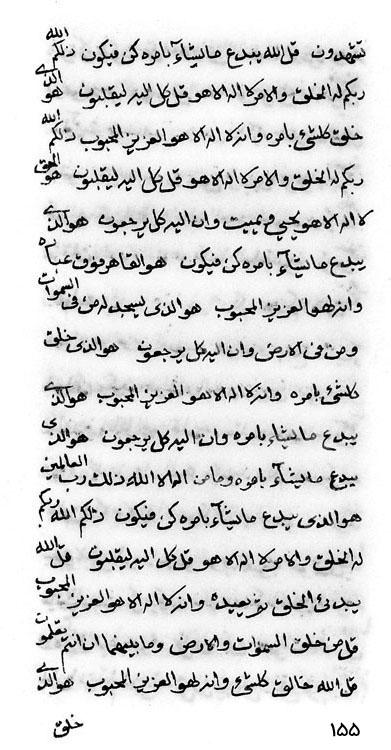 تشهدون قل الله يبدع ما يشآء بامره كن فيكون ذلكم الله
ربكم له الخلق والامر لا اله الا هو قل كل اليه ليقلبون هو الذي
خلق كلشئ بامره وانه لا اله الا هو العزيز المحبوب ذلكم الله
ربكم له الخلق والامر لا اله الا هو قل كل اليه ليقلبون هو الحق
لا اله الا هو يحيي ويميت وان اليه كل يرجعون هو الذي
يبدع ما يشآء بامره كن فيكون هو القاهر فوق عباده
وانه لهو العزيز المحبوب هو الذي يسجد له من في السموات
ومن في الارض وان اليه كل يرجعون هو الذي خلق
كلشئ بامره وانه لا اله الا هو العزيز المحبوب هو الذي
يبدع ما يشآء بامره وان اليه كل يرجعون هو الذي
يبدع ما يشآء بامره وما من اله الا الله ذلك رب العالمين
هو الذي يبدع ما يشآء بامره كن فيكون ذلكم الله ربكم
له الخلق والامر لا اله الا هو قل كل اليه ليقلبون قل الله
يبدئ الخلق ثم يعيده وانه لا اله الا هو العزيز المحبوب
قل من خلق السموات والارض وما بينهما ان انتم تعلمون
قل الله خالق كلشئ وانه لهو العزيز المحبوب هو الذي
خلق
۱۵۵